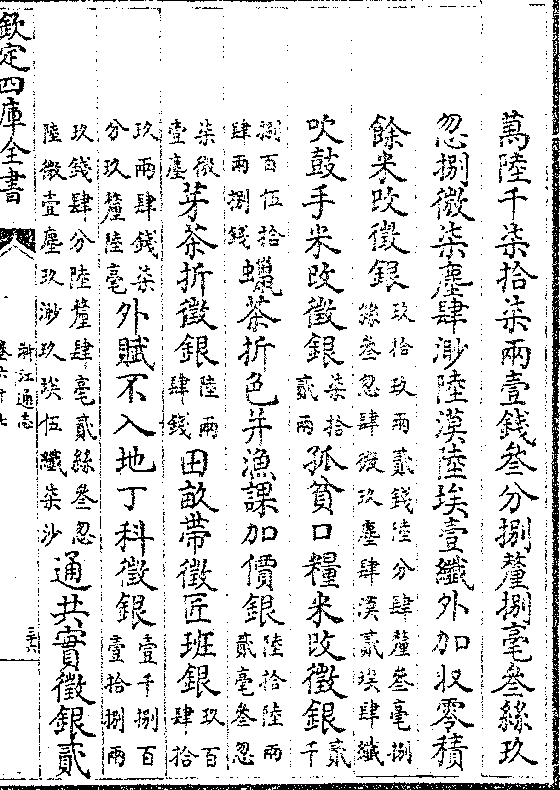 萬陸千柒拾柒兩壹錢叁分捌釐捌毫叁絲玖
忽捌微柒塵肆渺陸漠陸埃壹纖外加收零積
餘米改徵銀玖拾玖兩貳錢陸分肆釐叁毫捌絲叁忽肆微玖塵肆漠貳埃肆纖
吹鼓手米改徵銀柒拾貳兩孤貧口糧米改徵銀貳千
捌百伍拾肆兩捌錢蠟茶折色并漁課加價銀陸拾陸兩貳毫叁忽
柒微壹塵芽茶折徵銀陸兩肆錢田畝帶徵匠班銀玖百肆拾
玖兩肆錢柒分玖釐陸毫外賦不入地丁科徵銀壹千捌百壹拾捌兩
玖錢肆分陸釐肆毫貳絲叁忽陸微壹塵玖渺玖埃伍纖柒沙通共實徵銀貳
欽定四庫全書
浙江通志